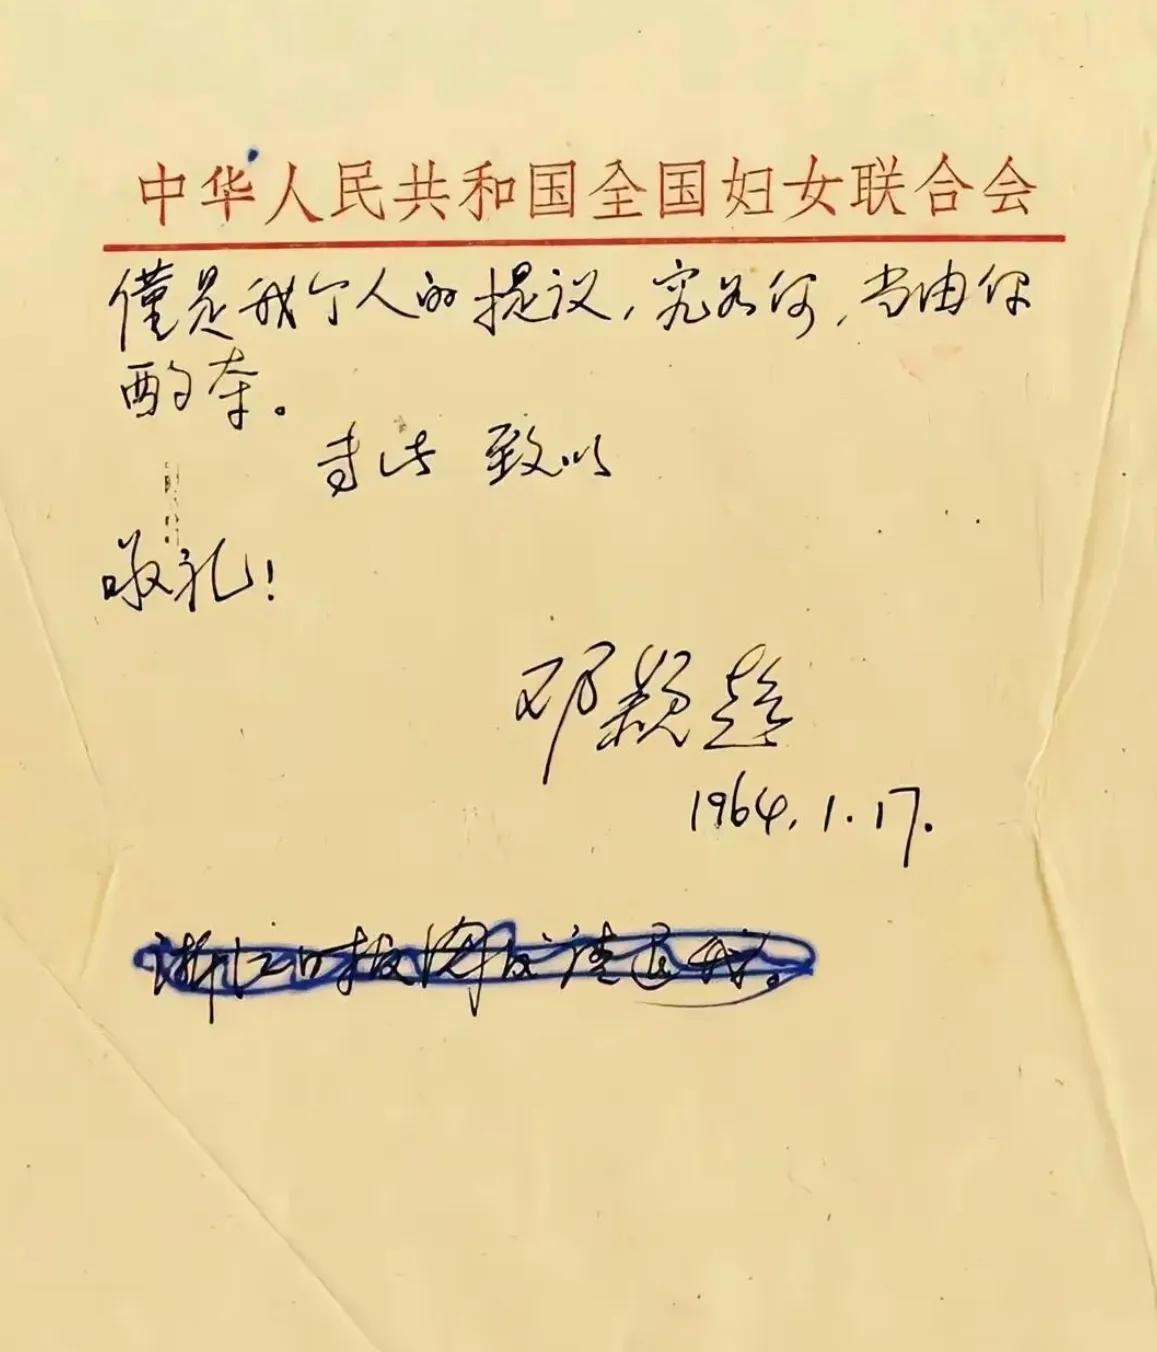 中华人民共和国全国妇女联合会
僅是我个人的提议，究如何，当由你
酌夺。
专此 致以
敬礼！
邓颖超
1964.1.17.
浙江日报阅后请退我。